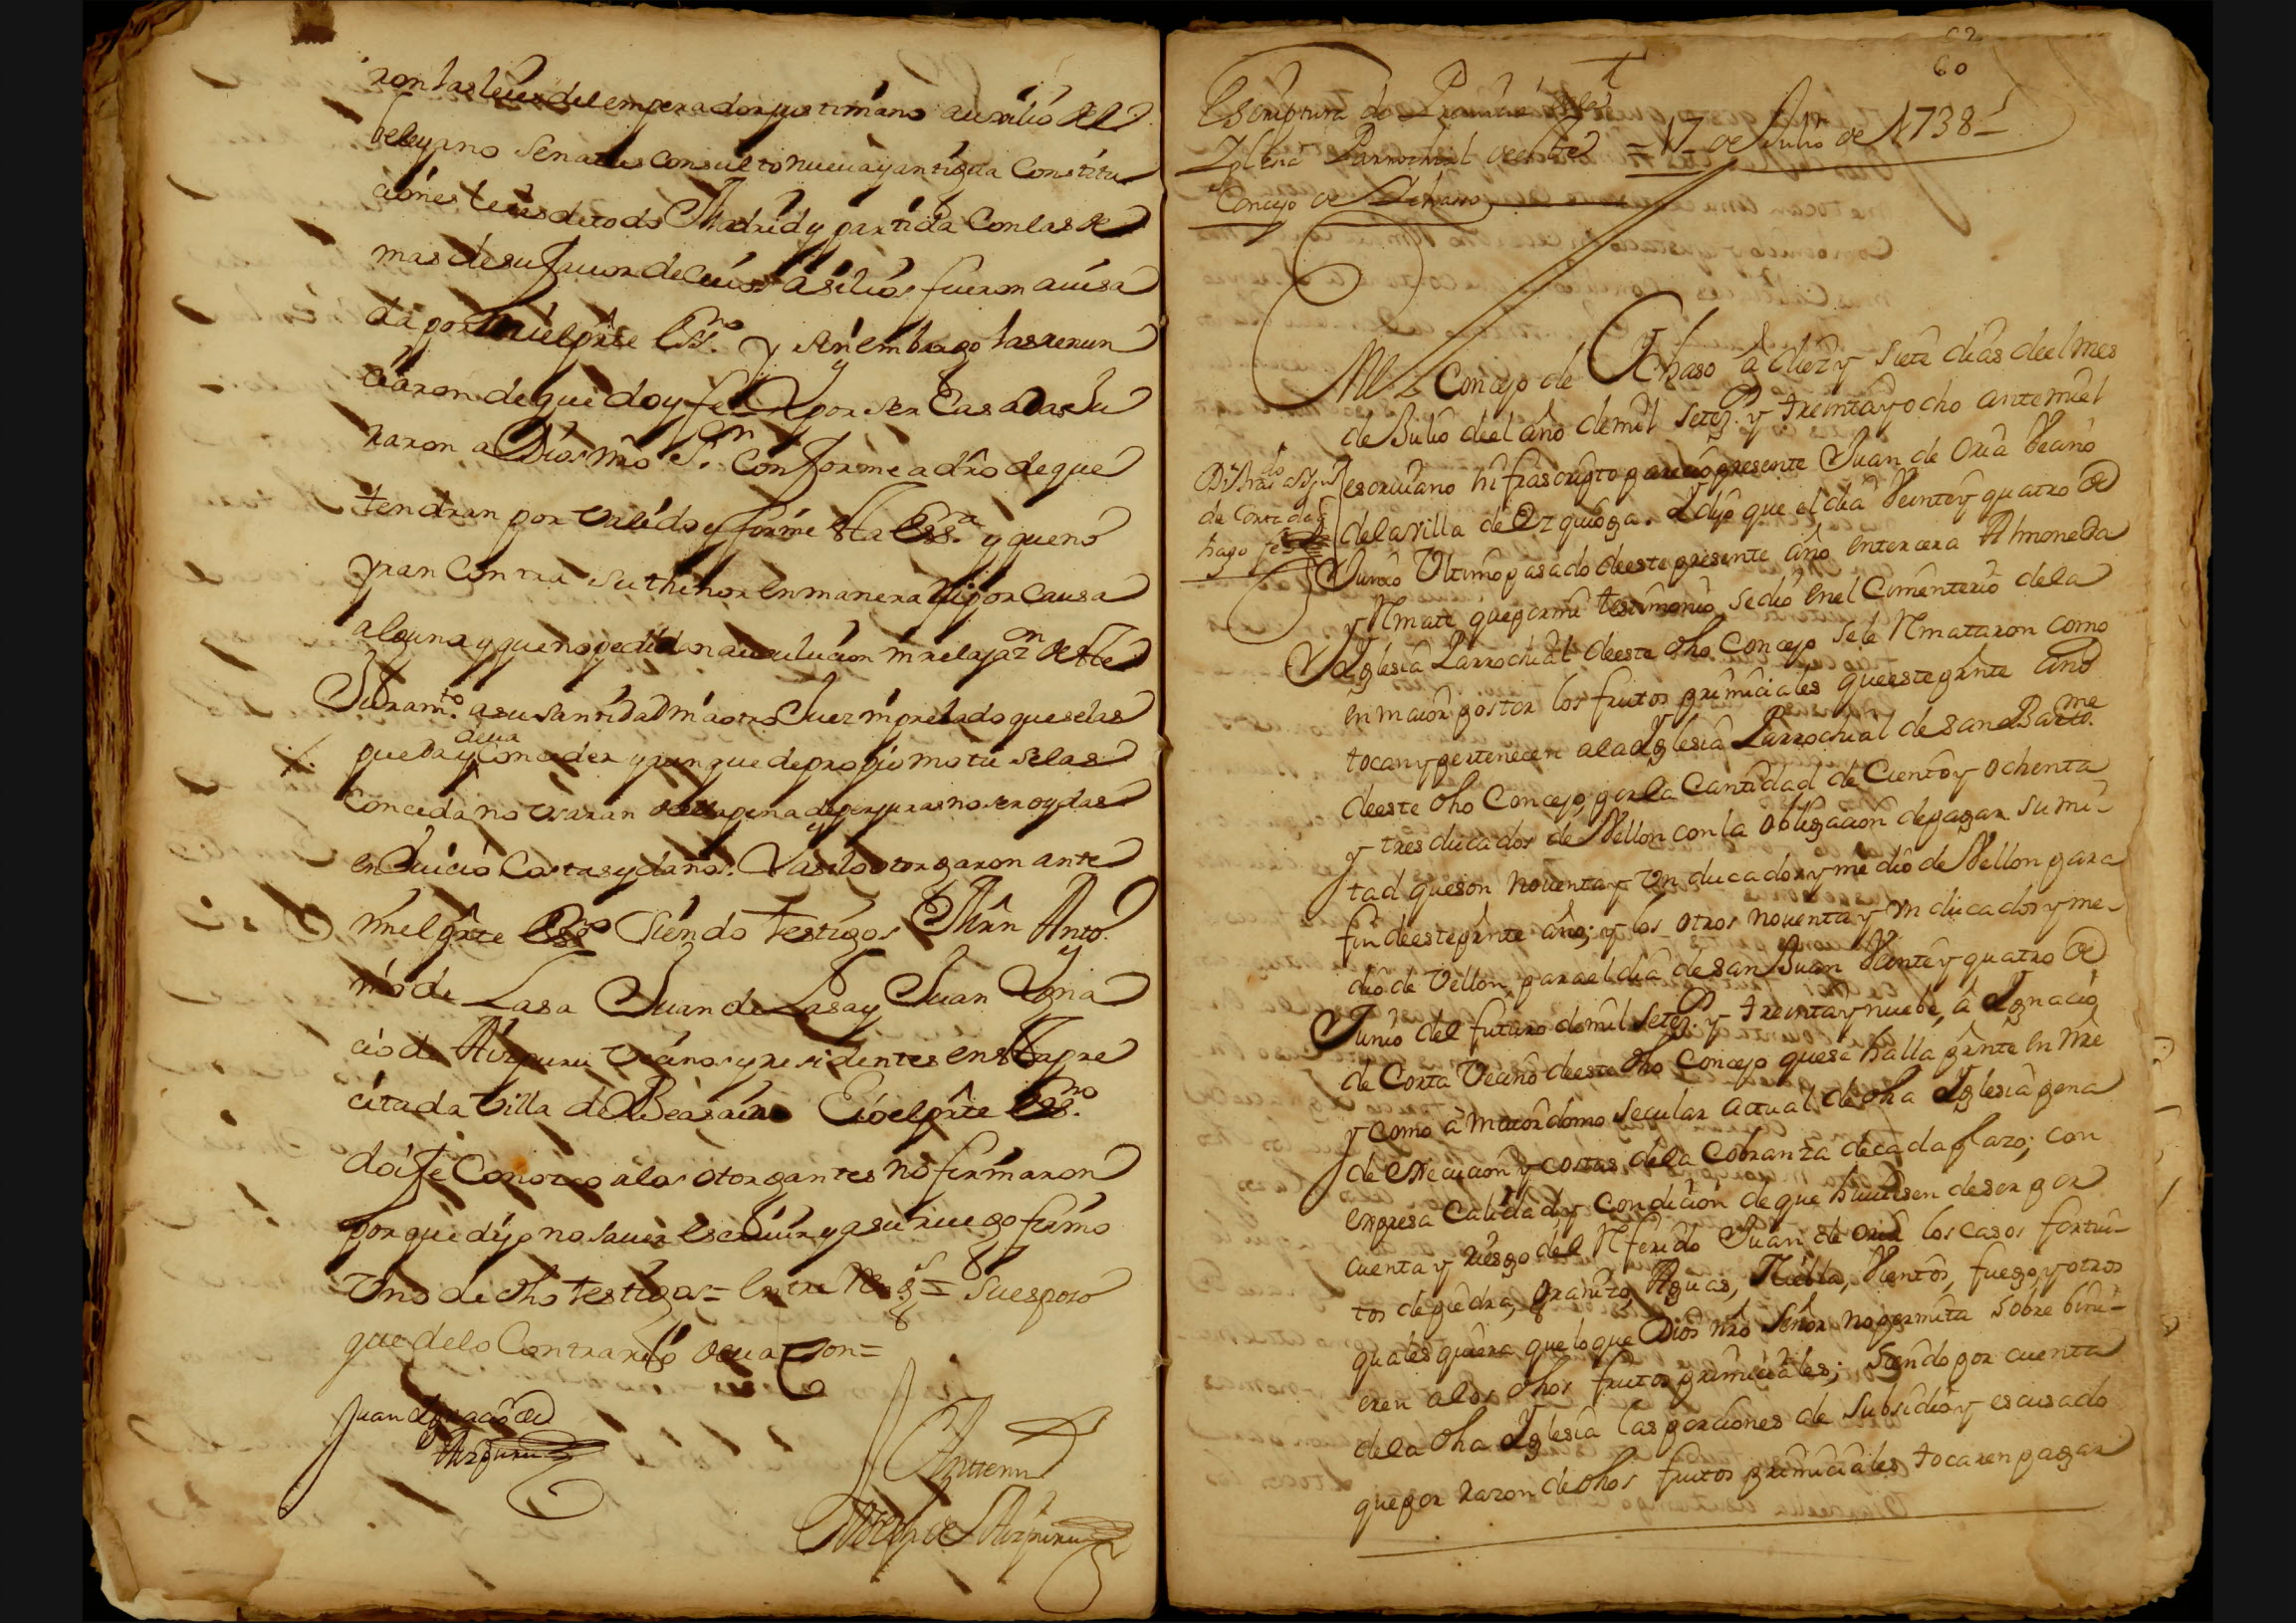 ron las leies del emperador justiniano auxilio del
beleyano Senatus consulto nueva y antigua Constitu
ciones leies de todo Madrid y partida Con las de
mas de su favor de cuios asilios fueron avisa
da por mi el prᵗᵉ Essⁿᵒ. y sin embargo las renun
ciaron de que doy fe Y por ser Casadas Ju
raron a Dios nrō Sʳ. Conforme a drō de que
tendran por valido y firme esta Essʳᵃ. y que no
yran contra su thenor en manera ni por causa
alguna y que no pediran absulucion ni relajazⁿ de este
Juramᵗᵒ. a su santidad ni a otro Juez ni prelado que se las
pueda y deva conceder y aunque de propio motu se las
Conceda no usaran de ella pena de perjuras no ser oydas
en Juicio Costas y daños. Y asi lo otorgaron ante
mi el prᵗᵉ Essⁿᵒ Siendo testigos Jhan Anto
nio de Lasa Juan de Lasa y Juan Igna
cio de Aizpuru vecinos y residentes en esta pre
citada Villa de Beasain E io el prᵗᵉ Essⁿᵒ.
doi fe Conozco a los otorgantes no firmaron
porque dijo no saver escrivir y a su ruego firmo
Uno de dhos testigos = Entre Rengˢ = Su esposo
que de lo Contrario deva =on=
Juan Ignacio de
Aizpuru
Antemi
Joseph de Aizpuru
62
60
Escriptura de Primicia de la
Iglesia Parrochial de este = 17 de Julio de 1738
Concejo de Ichaso
En el Concejo de Ychaso â diez y siete dias de el mes
de Julio de el año de mil setezˢ. y treinta y ocho ante mi el
escrivano infrascripto pareciò presente Juan de Oria Vecino
de la villa de Ezquioga. Y dijo que el dia Veinte y quatro de
Junio Ultimo pasado de este presente año en tercera Almoneda
y Rmate que por mi testimonio se dió en el Cimenterio de la
Yglesia Parrochial de este dho Concejo se le Rmataron como
en maior postor los frutos primiciales que este prᵗᵉ año
tocan y pertenecen a la Yglesia Parrochial de San Bartoᵐᵉ
de este dho Concejo, por la Cantidad de Ciento y ochenta
y tres ducados de Vellon con la obligacion de pagar su mi-
tad que son noventa y Un ducados y medio de Vellon para
fin de este prᵗᵉ año; y los otros noventa y Un ducados y me-
dio de Vellon para el dia de San Juan Veinte y quatro de
Junio del futuro de mil setezˢ. y treinta y nuebe, â Ignacio
de Corta Vecino de este dho Concejo que se halla prᵗᵉ en Nre
y como â maiordomo secular actual de dha Yglesia pena
de execucion y costas de la Cobranza de cada plazo; con
expresa Calidad y Condicion de que huviesen de ser por
cuenta y riesgo del Rferido Juan de Oria los casos fortui-
tos de piedra, granizo, Aguas, Niebla, Vientos, fuego, y otros
quales quiera que lo que Dios nrō Señor no permita sobre bini-
eren a los dhos frutos primiciales; siendo por cuenta
de la dha Yglesia las porciones de Subsidio y escusado
que por razon de dhos frutos primiciales tocaren pagar